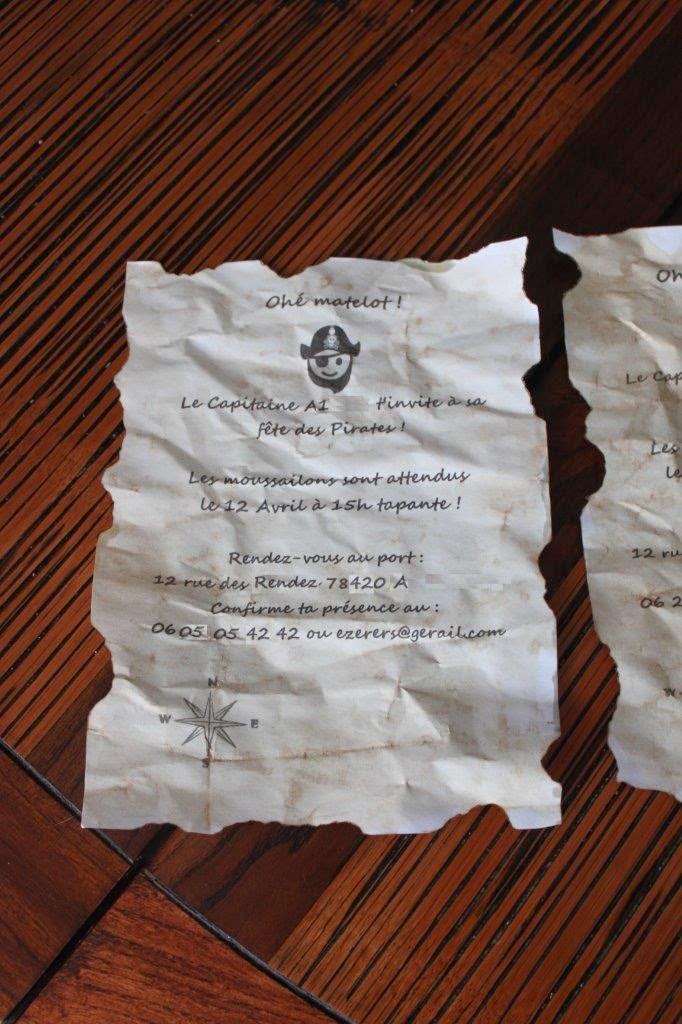 Ohé matelot !
Le Capitaine A1 t'invite à sa
fête des Pirates !
Les moussaillons sont attendus
le 12 Avril à 15h tapante !
Rendez-vous au port :
12 rue des Rendez. 78420 A
Confirme ta présence au :
06 05 05 42 42 ou ezerers@gerail.com
N
W E
S
Oh
Le Cap
Les
le
12 ru
06 2
W